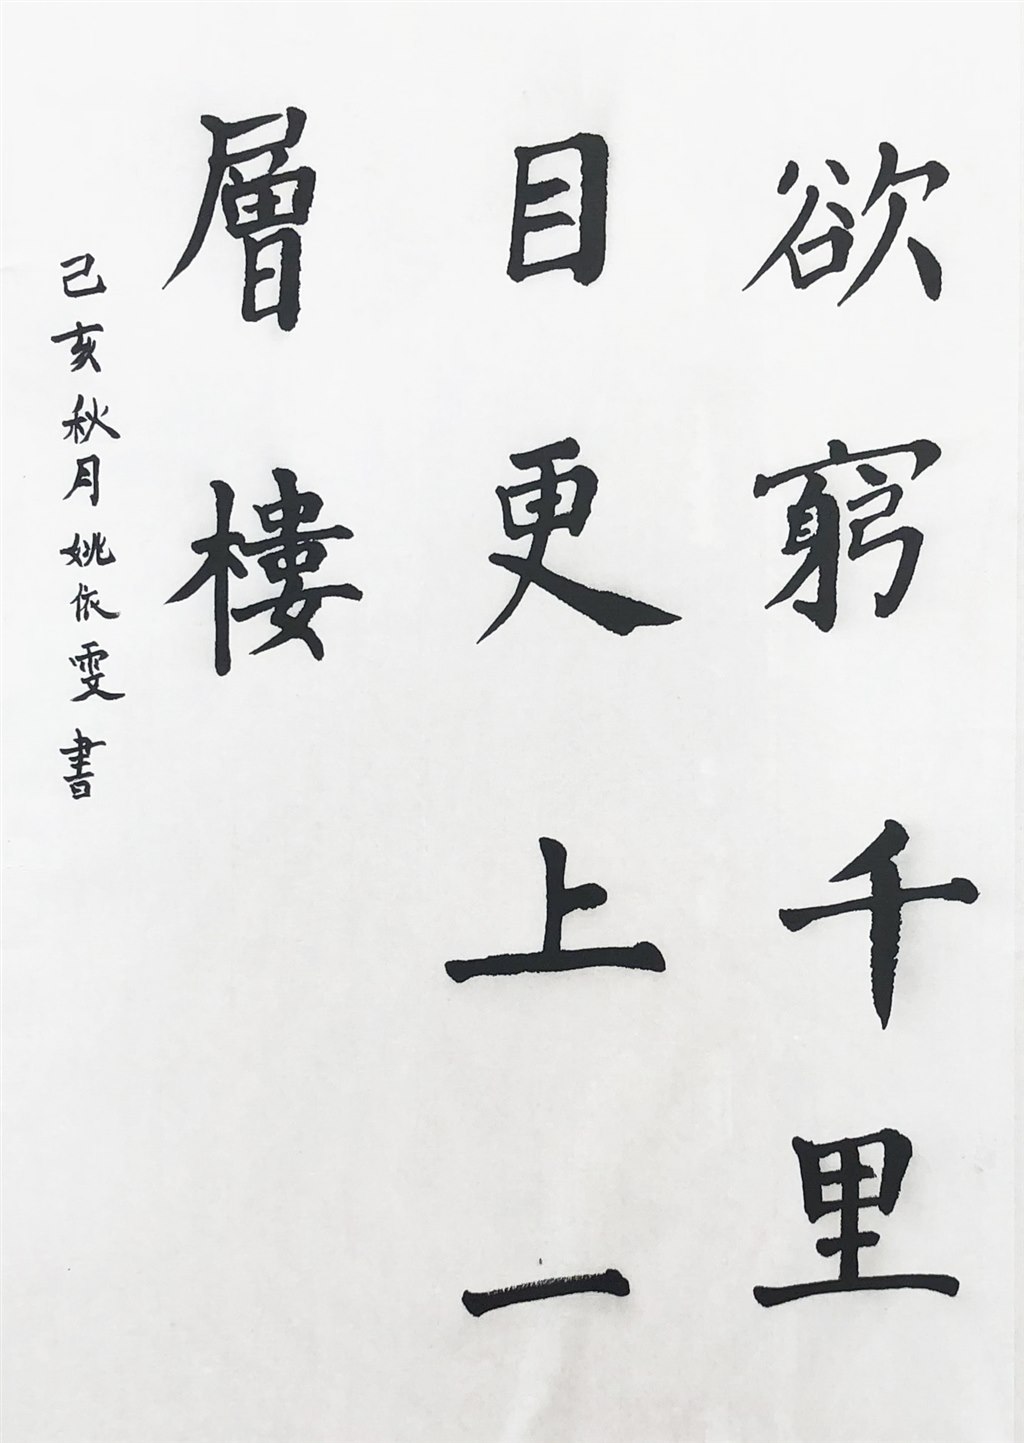 欲窮千里
目更上一
層樓
己亥秋月姚依雯書